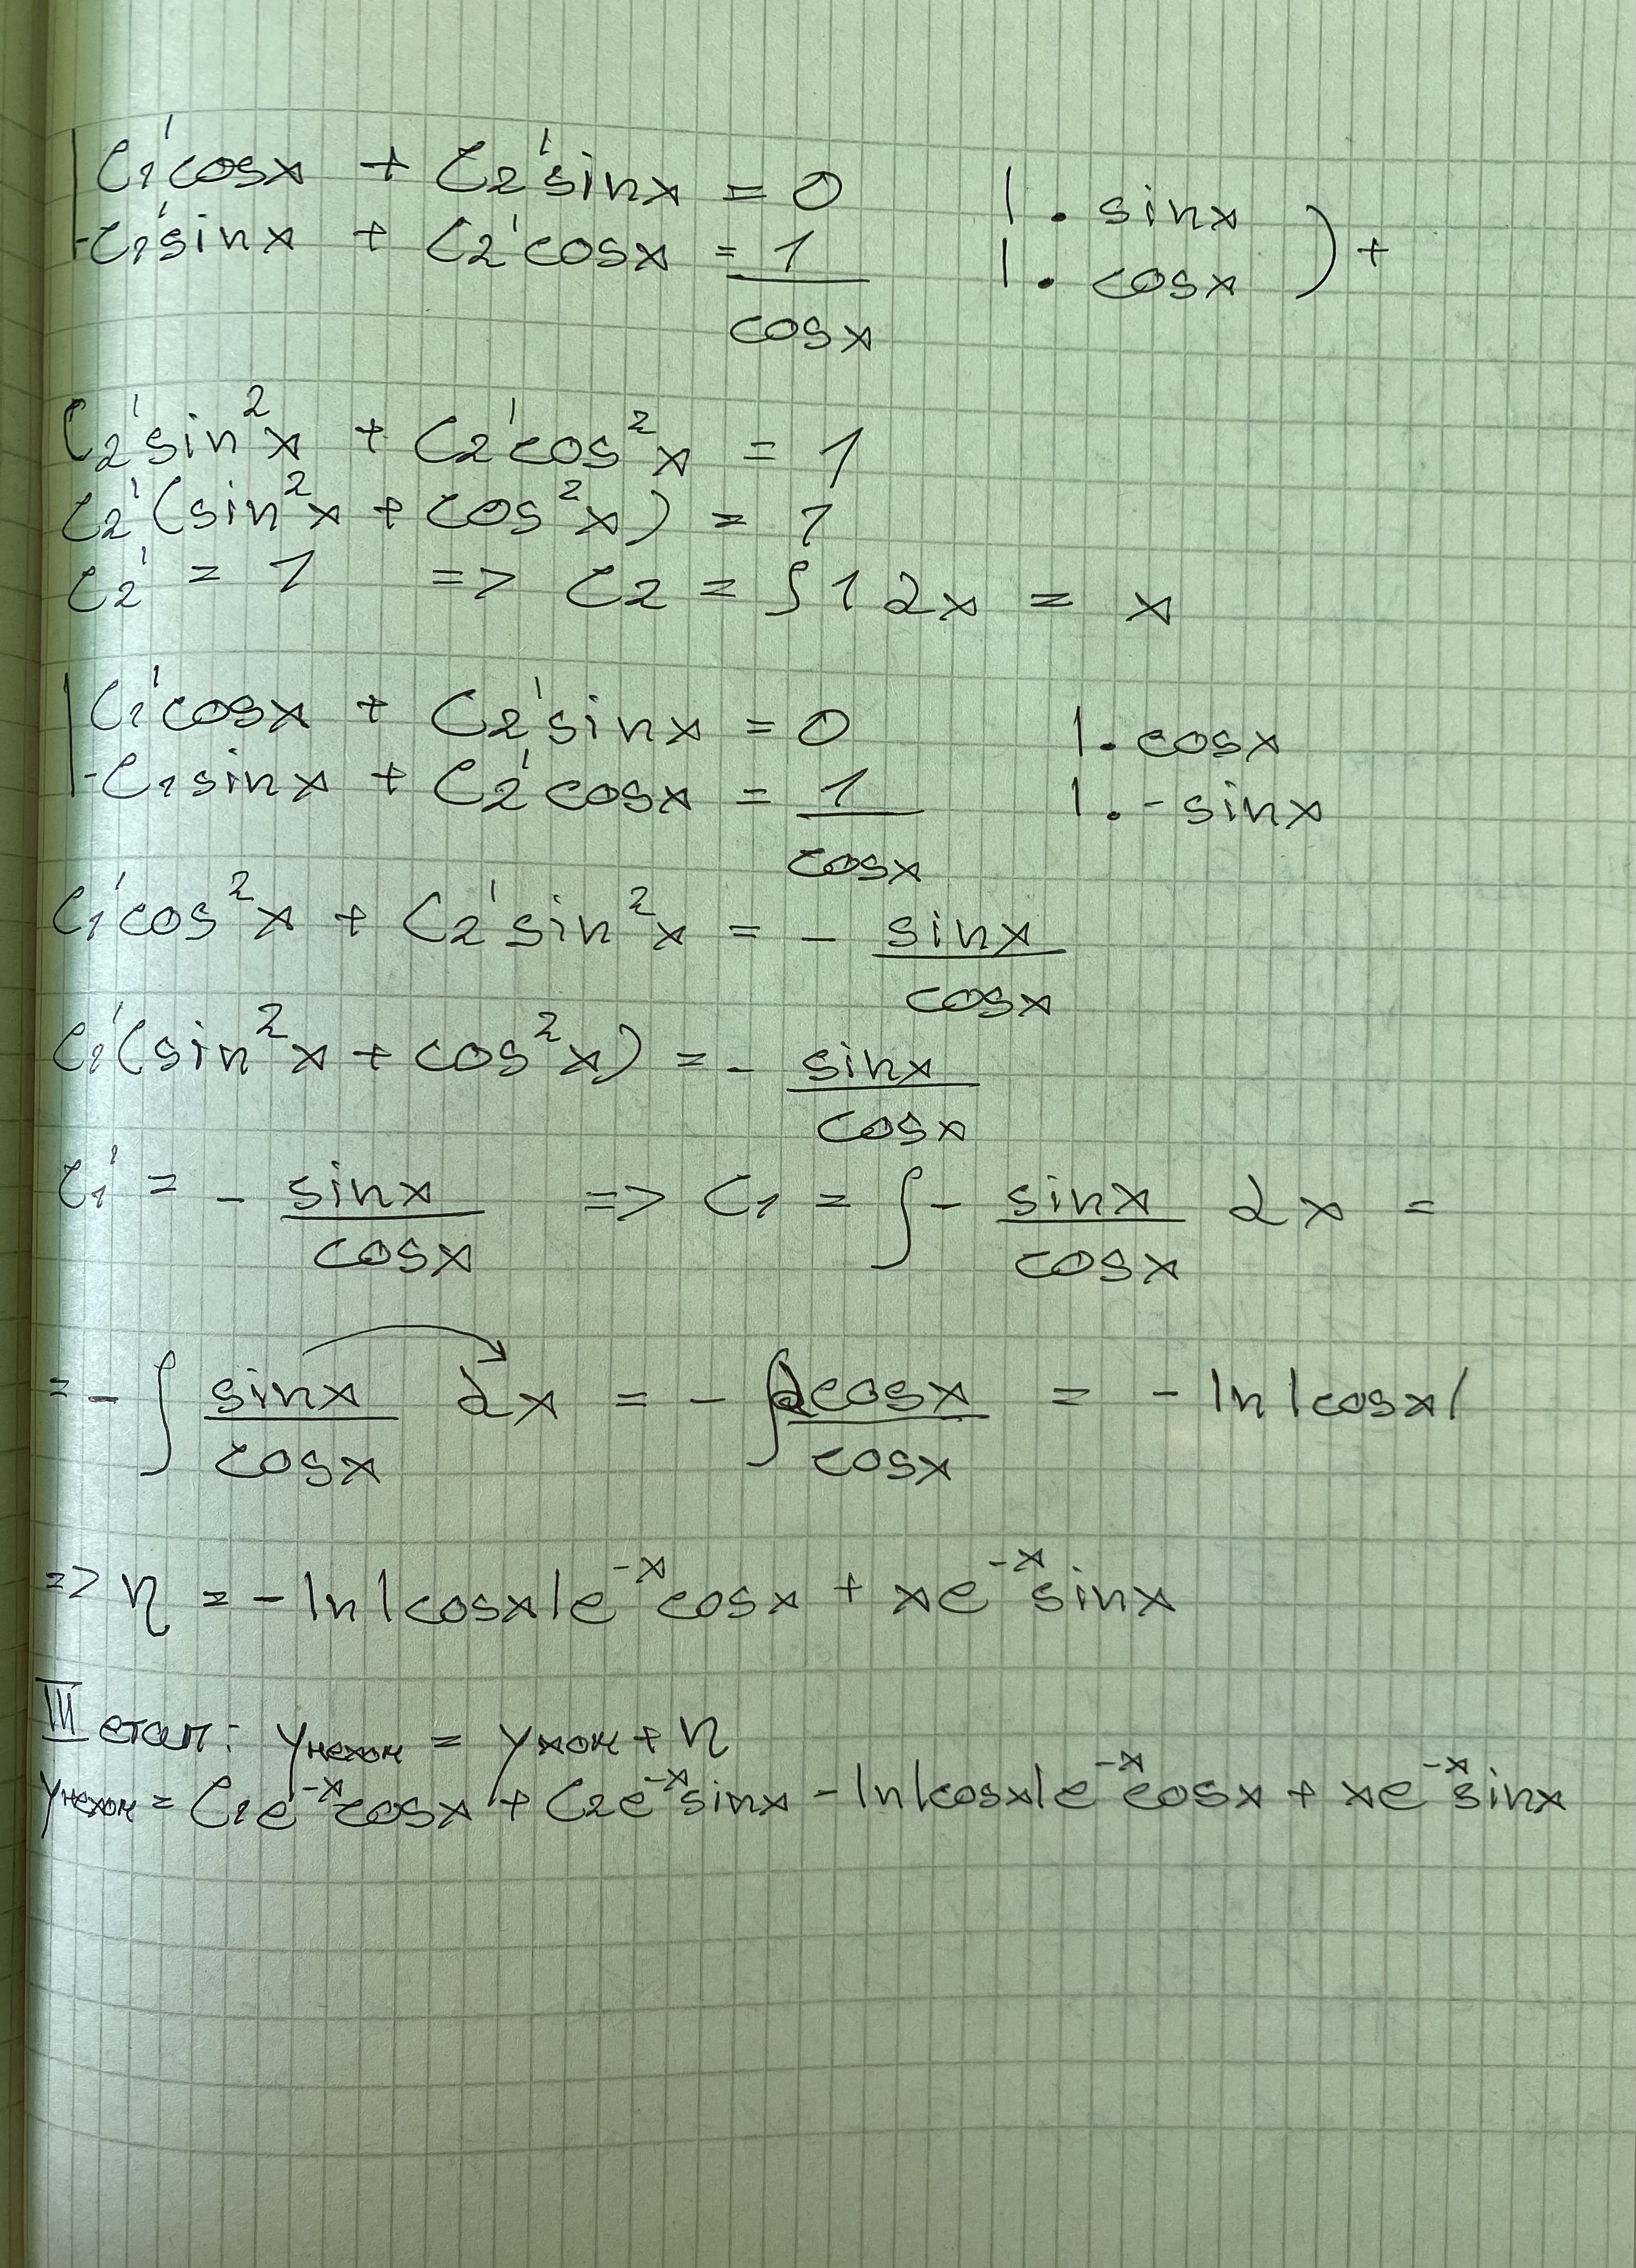 C₁'cosx + C₂'sinx = 0 |. sinx
-C₁'sinx + C₂'cosx = 1/cosx |. cosx ) +
C₂'sin²x + C₂'cos²x = 1
C₂'(sin²x + cos²x) = 1
C₂' = 1 => C₂ = ∫1 dx = x
C₁'cosx + C₂'sinx = 0 |. cosx
-C₁sinx + C₂'cosx = 1/cosx |. -sinx
C₁'cos²x + C₂'sin²x = - sinx/cosx
C₁'(sin²x + cos²x) = - sinx/cosx
C₁' = - sinx/cosx => C₁ = ∫ - sinx/cosx dx =
= - ∫ sinx/cosx dx = - ∫ dcosx/cosx = - ln|cosx|
=> η = - ln|cosx|e⁻ˣcosx + xe⁻ˣsinx
III етап: yнехом = yхом + η
yнехом = C₁e⁻ˣcosx + C₂e⁻ˣsinx - ln|cosx|e⁻ˣcosx + xe⁻ˣsinx